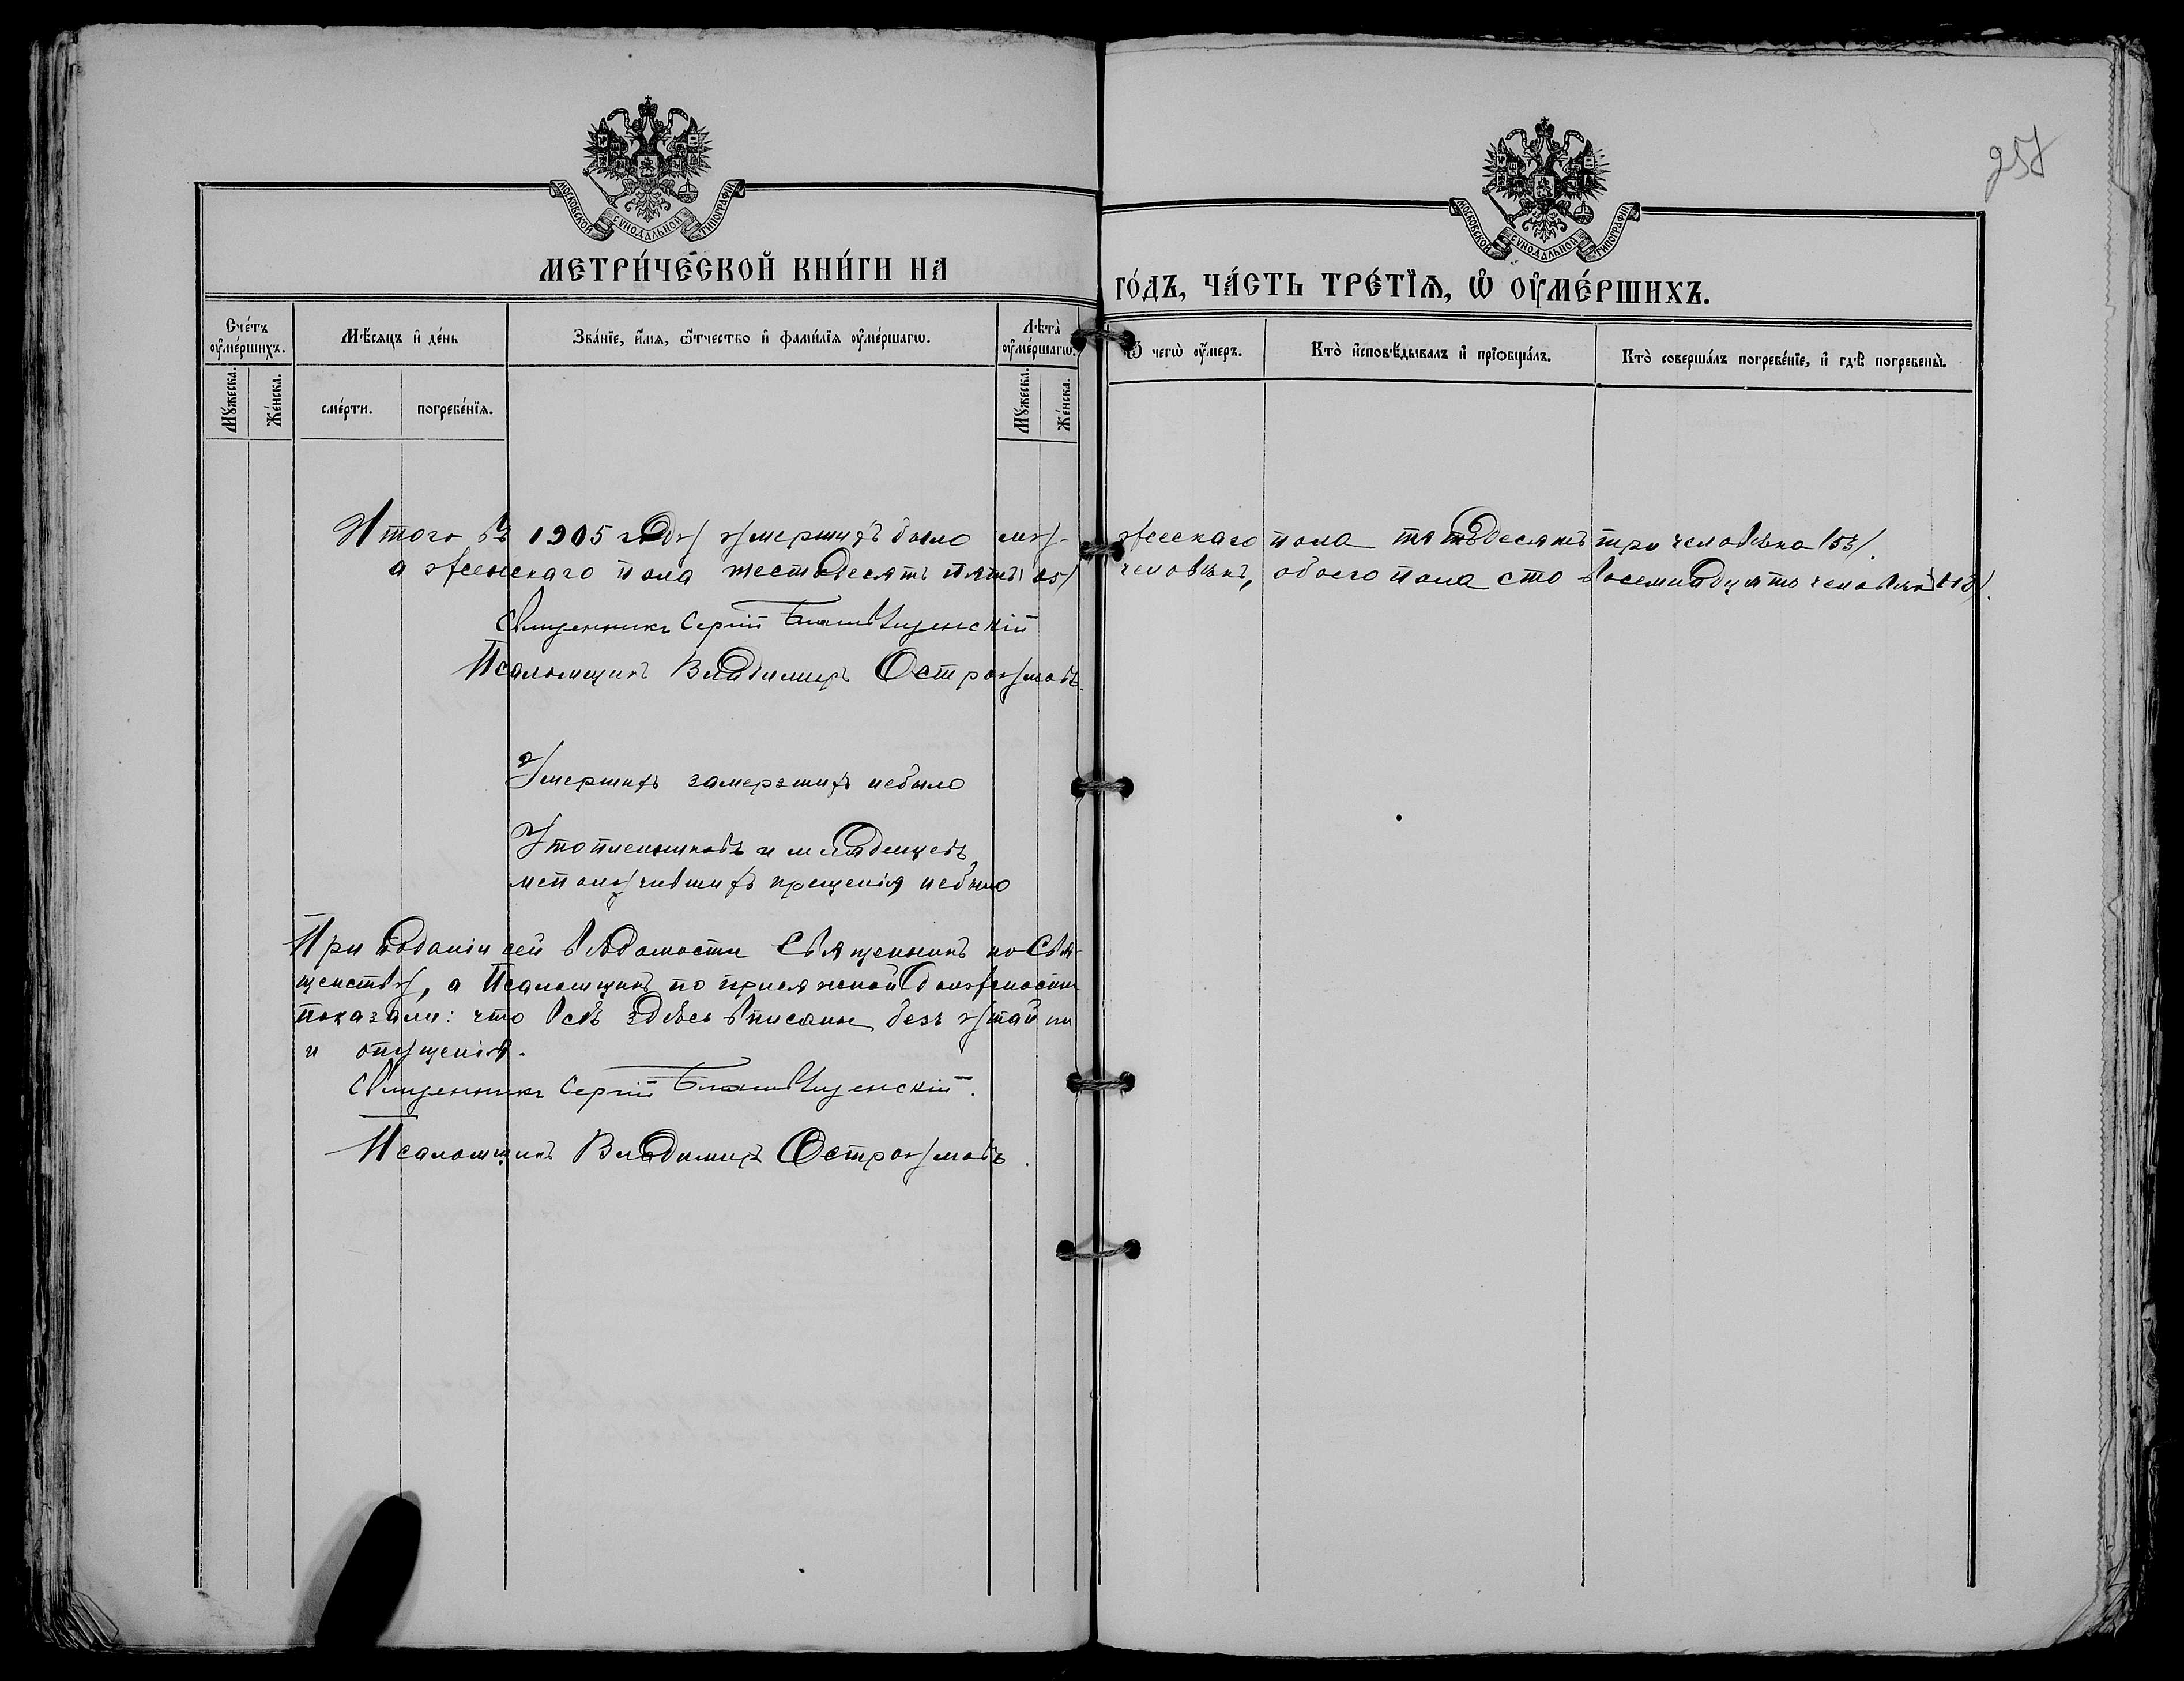 257
МОСКОВСКОЙ СѴНОДАЛЬНОЙ ТИПОГРАФІИ
МОСКОВСКОЙ СѴНОДАЛЬНОЙ ТИПОГРАФІИ
МЕТРИ́ЧЕСКОЙ КНИ́ГИ НА го́дъ, ча́сть тре́тїѧ, ѡ҆ оу҆ме́ршихъ.
Сче́тъ оу҆ме́ршихъ.
Мꙋжеска.
Же́нска.
Мѣ́сѧцъ и҆ де́нь
сме́рти.
погребе́нїѧ.
Зва́нїе, и҆́мѧ, ѻ҆́тчество и҆ фами́лїѧ оу҆ме́ршагѡ.
Лѣ̀та оу҆ме́ршагѡ.
Мꙋжеска.
Же́нска.
Ѿ чегѡ̀ оу҆́меръ.
Кто̀ и҆сповѣ́дывалъ и҆ прїѡбща́лъ.
Кто̀ соверша́лъ погребе́нїе, и҆ гдѣ̀ погребены̀.
Итого въ 1905 году умершихъ было му-жескаго пола пятьдесятъ три человѣка /53/.
а женскаго пола шестьдесятъ пять /65/ человѣкъ, обоего пола сто восемнадцать человѣкъ /118/.
Священникъ Сергій Благовѣщенскій
Псаломщикъ Владимиръ Остроумовъ.
Умершихъ замерзшихъ небыло
Утопленниковъ и младенцевъ
неполучившихъ крещенія небыло
При поданіи сей вѣдомости Священникъ по Свя-
щенству, а Псаломщикъ по присяжной должности
показали: что всѣ здѣсь вписаны безъ утайки
и опущенія.
Священникъ Сергій Благовѣщенскій.
Псаломщикъ Владимиръ Остроумовъ.